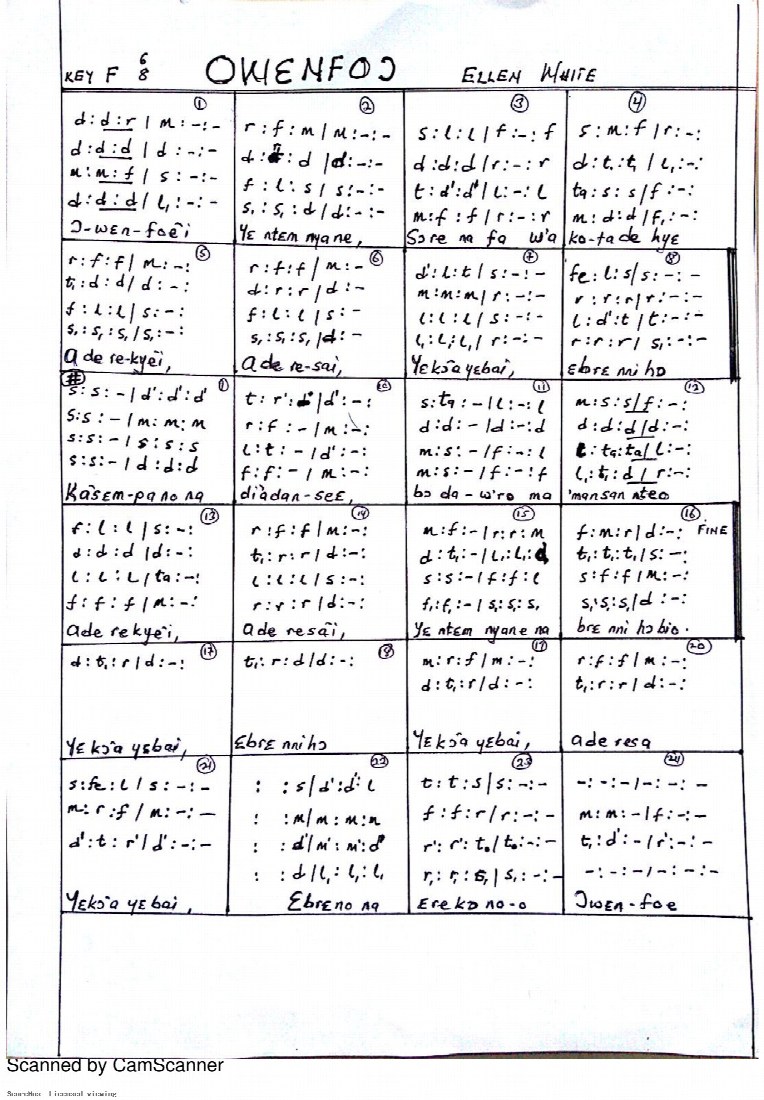 KEY F 6/8 OWENFOƆ ELLEN WHITE
① ② ③ ④
d : d : r / m : - : - r : f : m / m : - : - s : l : l / f : - : f s : m : f / r : - :
d : d : d / d : - : - d : d / d : - : - d : d : d / r : - : r d : t, : t, / l, : - :
m : m : f / s : - : - f : l : s / s : - : - t : d' : d' / l : - : l ta : s : s / f : - :
d : d : d / l, : - : - s, : s, : d / d : - : - m : f : f / r : - : r m : d : d / f, : - :
Ɔ-wɛn-foɛ̃i Yɛ ntɛm nyane, Sɔre na fa w'a ko-ta de hyɛ
⑤ ⑥ ⑦ ⑧
r : f : f / m : - : r : f : f / m : - d' : l : t / s : - : - fe : l : s / s : - : -
t, : d : d / d : - : d : r : r / d : - m : m : m / r : - : - r : r : r / r : - : -
f : l : l / s : - : f : l : l / s : - l : l : l / s : - : - l : d' : t / t : - : -
s, : s, : s, / s, : - : s, : s, : s, / d : - l, : l, : l, / r : - : - r : r : r / s, : - :
Ade re-kyɛ̃i, Ade re-sai, Yɛkɔ̃'a yɛbai, Ɛbrɛ nni hɔ
⑨ ⑩ ⑪ ⑫
s : s : - / d' : d' : d' t : r' : / d' : - : s : ta : - / l : - : l m : s : s / f : - :
s : s : - / m : m : m r : f : - / m : - : d : d : - / d : - : d d : d : d / d : - :
s : s : - / s : s : s l : t : - / d' : - : m : s : - / f : - : l t : ta : ta / l : - :
s : s : - / d : d : d f : f : - / m : - : m : s : - / f : - : f l, : t, : d / r : - :
Kasɛm-pa no na di'adan-seɛ, bɔ da-w'ro ma 'mansan nteɔ
⑬ ⑭ ⑮ ⑯
f : l : l / s : - : r : f : f / m : - : m : f : - / r : r : m f : m : r / d : - : FINE
d : d : d / d : - : t, : r : r / d : - : d : t, : - / l, : l, : d t, : t, : t, / s : - :
l : l : l / ta : - : l : l : l / s : - : s : s : - / f : f : l s : f : f / m : - :
f : f : f / m : - : r : r : r / d : - : f, : f, : - / s, : s, : s, s, : s, : s, / d : - :
Ade rekyɛ̃i, Ade resãi, Yɛ ntɛm nyane na brɛ nni hɔ bio.
⑰ ⑱ ⑲ ⑳
d : t, : r / d : - : t, : r : d / d : - : m : r : f / m : - : r : f : f / m : - :
d : t, : r / d : - : t, : r : r / d : - :
Yɛkɔ'a yɛbai, Ɛbrɛ nni hɔ Yɛkɔ'a yɛbai, ade resa
㉑ ㉒ ㉓ ㉔
s : fe : l / s : - : - : : s / d' : d' : l t : t : s / s : - : - - : - : - / - : - : -
m : r : f / m : - : - : : m / m : m : m f : f : r / r : - : - m : m : - / f : - : -
d' : t : r' / d' : - : - : : d' / m' : m' : d' r' : r' : t / t : - : - t, : d' : - / r' : - : -
: : d / l, : l, : l, r, : r, : / s, : - : - - : - : - / - : - : -
Yɛkɔ'a yɛbai, Ɛbrɛno na Ɛrekɔ no-o Ɔwɛn-foɛ
Scanned by CamScanner